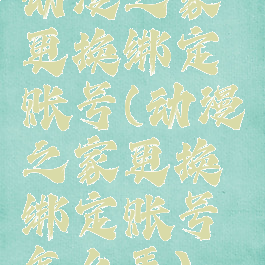 动漫之家
更换绑定
账号(动漫
之家更换
绑定账号